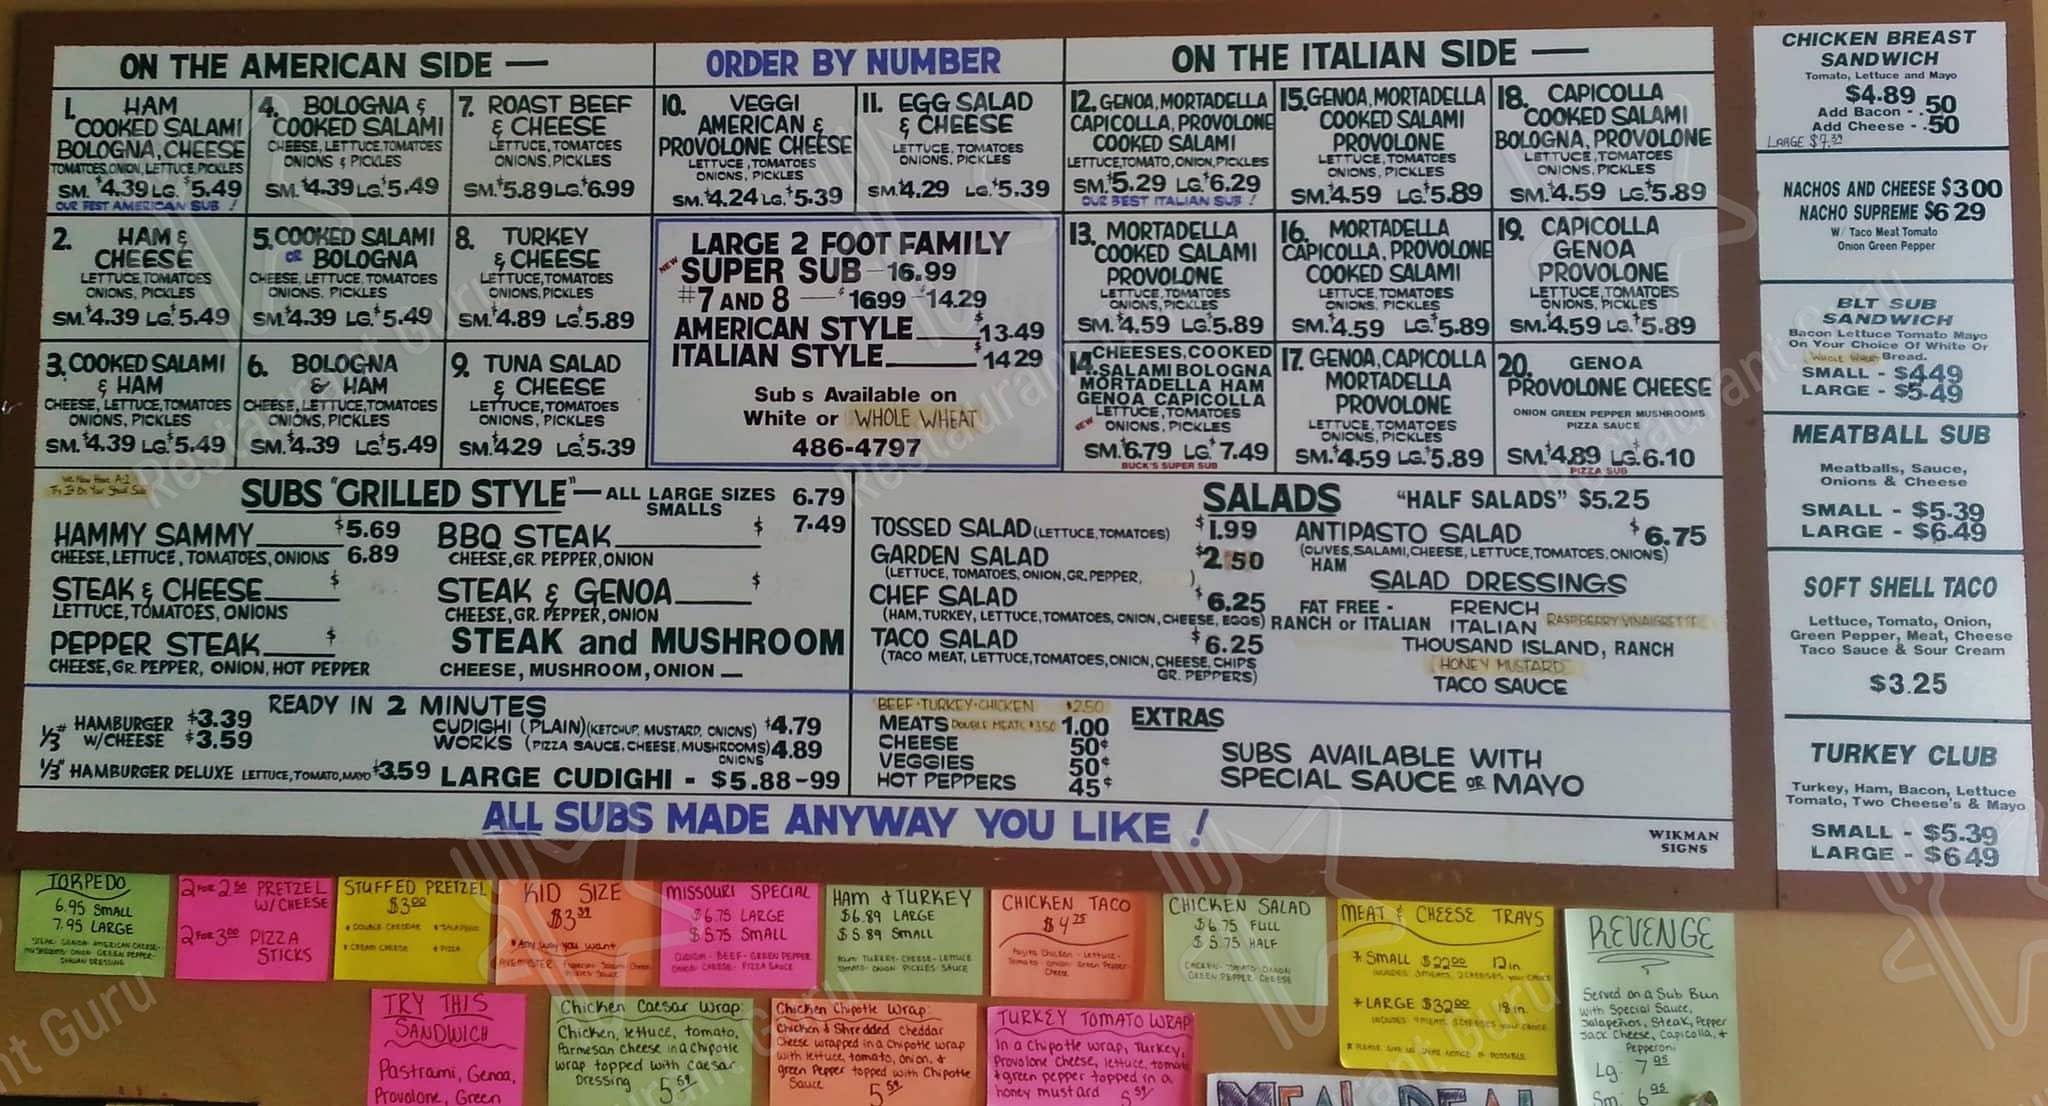 ON THE AMERICAN SIDE —
1. HAM
COOKED SALAMI
BOLOGNA, CHEESE
TOMATOES, ONION, LETTUCE, PICKLES
SM. $4.39 LG. $5.49
OUR BEST AMERICAN SUB !
4. BOLOGNA &
COOKED SALAMI
CHEESE, LETTUCE, TOMATOES
ONIONS & PICKLES
SM. $4.39 LG. $5.49
7. ROAST BEEF
& CHEESE
LETTUCE, TOMATOES
ONIONS, PICKLES
SM. $5.89 LG. $6.99
2. HAM &
CHEESE
LETTUCE, TOMATOES
ONIONS, PICKLES
SM. $4.39 LG. $5.49
5. COOKED SALAMI
OR BOLOGNA
CHEESE, LETTUCE, TOMATOES
ONIONS, PICKLES
SM. $4.39 LG. $5.49
8. TURKEY
& CHEESE
LETTUCE, TOMATOES
ONIONS, PICKLES
SM. $4.89 LG. $5.89
3. COOKED SALAMI
& HAM
CHEESE, LETTUCE, TOMATOES
ONIONS, PICKLES
SM. $4.39 LG. $5.49
6. BOLOGNA
& HAM
CHEESE, LETTUCE, TOMATOES
ONIONS, PICKLES
SM. $4.39 LG. $5.49
9. TUNA SALAD
& CHEESE
LETTUCE, TOMATOES
ONIONS, PICKLES
SM. $4.29 LG. $5.39
ORDER BY NUMBER
10. VEGGI
AMERICAN &
PROVOLONE CHEESE
LETTUCE, TOMATOES
ONIONS, PICKLES
SM. $4.24 LG. $5.39
11. EGG SALAD
& CHEESE
LETTUCE, TOMATOES
ONIONS, PICKLES
SM. $4.29 LG. $5.39
LARGE 2 FOOT FAMILY
NEW SUPER SUB — 16.99
#7 AND 8 — $16.99 - 14.29
AMERICAN STYLE $13.49
ITALIAN STYLE $14.29
Subs Available on
White or WHOLE WHEAT
486-4797
ON THE ITALIAN SIDE —
12. GENOA, MORTADELLA
CAPICOLLA, PROVOLONE
COOKED SALAMI
LETTUCE, TOMATO, ONION, PICKLES
SM. $5.29 LG. $6.29
OUR BEST ITALIAN SUB !
15. GENOA, MORTADELLA
COOKED SALAMI
PROVOLONE
LETTUCE, TOMATOES
ONIONS, PICKLES
SM. $4.59 LG. $5.89
18. CAPICOLLA
COOKED SALAMI
BOLOGNA, PROVOLONE
LETTUCE, TOMATOES
ONIONS, PICKLES
SM. $4.59 LG. $5.89
13. MORTADELLA
COOKED SALAMI
PROVOLONE
LETTUCE, TOMATOES
ONIONS, PICKLES
SM. $4.59 LG. $5.89
16. MORTADELLA
CAPICOLLA, PROVOLONE
COOKED SALAMI
LETTUCE, TOMATOES
ONIONS, PICKLES
SM. $4.59 LG. $5.89
19. CAPICOLLA
GENOA
PROVOLONE
LETTUCE, TOMATOES
ONIONS, PICKLES
SM. $4.59 LG. $5.89
14. CHEESES, COOKED
SALAMI BOLOGNA
MORTADELLA HAM
GENOA CAPICOLLA
LETTUCE, TOMATOES
NEW ONIONS, PICKLES
SM. $6.79 LG. $7.49
BUCK'S SUPER SUB
17. GENOA, CAPICOLLA
MORTADELLA
PROVOLONE
LETTUCE, TOMATOES
ONIONS, PICKLES
SM. $4.59 LG. $5.89
20. GENOA
PROVOLONE CHEESE
ONION GREEN PEPPER MUSHROOMS
PIZZA SAUCE
SM. $4.89 LG. $6.10
PIZZA SUB
We Now Have A-1
Try It On Your Steak Sub
SUBS "GRILLED STYLE" — ALL LARGE SIZES 6.79
SMALLS
HAMMY SAMMY $5.69
CHEESE, LETTUCE, TOMATOES, ONIONS 6.89
STEAK & CHEESE $
LETTUCE, TOMATOES, ONIONS
PEPPER STEAK $
CHEESE, GR. PEPPER, ONION, HOT PEPPER
BBQ STEAK $ 7.49
CHEESE, GR. PEPPER, ONION
STEAK & GENOA $
CHEESE, GR. PEPPER, ONION
STEAK and MUSHROOM
CHEESE, MUSHROOM, ONION —
SALADS "HALF SALADS" $5.25
TOSSED SALAD (LETTUCE, TOMATOES) $1.99
GARDEN SALAD $2.50
(LETTUCE, TOMATOES, ONION, GR. PEPPER, )
CHEF SALAD $6.25
(HAM, TURKEY, LETTUCE, TOMATOES, ONION, CHEESE, EGGS)
TACO SALAD $6.25
(TACO MEAT, LETTUCE, TOMATOES, ONION, CHEESE, CHIPS
GR. PEPPERS)
ANTIPASTO SALAD $6.75
(OLIVES, SALAMI, CHEESE, LETTUCE, TOMATOES, ONIONS)
HAM
SALAD DRESSINGS
FAT FREE - FRENCH
RANCH or ITALIAN ITALIAN RASPBERRY VINAIGRETTE
THOUSAND ISLAND, RANCH
HONEY MUSTARD
TACO SAUCE
READY IN 2 MINUTES
1/3# HAMBURGER $3.39
W/CHEESE $3.59
1/3# HAMBURGER DELUXE LETTUCE, TOMATO, MAYO $3.59
CUDIGHI (PLAIN) (KETCHUP, MUSTARD, ONIONS) $4.79
WORKS (PIZZA SAUCE, CHEESE, MUSHROOMS) 4.89
ONIONS
LARGE CUDIGHI - $5.88-99
BEEF-TURKEY-CHICKEN $2.50
MEATS DOUBLE MEATS $3.50 1.00
CHEESE 50¢
VEGGIES 50¢
HOT PEPPERS 45¢
EXTRAS
SUBS AVAILABLE WITH
SPECIAL SAUCE OR MAYO
ALL SUBS MADE ANYWAY YOU LIKE !
WIKMAN
SIGNS
CHICKEN BREAST
SANDWICH
Tomato, Lettuce and Mayo
$4.89
Add Bacon - .50
Add Cheese - .50
LARGE $7.39
NACHOS AND CHEESE $3 00
NACHO SUPREME $6 29
W/ Taco Meat Tomato
Onion Green Pepper
BLT SUB
SANDWICH
Bacon Lettuce Tomato Mayo
On Your Choice Of White Or
WHOLE WHEAT Bread.
SMALL - $4.49
LARGE - $5.49
MEATBALL SUB
Meatballs, Sauce,
Onions & Cheese
SMALL - $5.39
LARGE - $6.49
SOFT SHELL TACO
Lettuce, Tomato, Onion,
Green Pepper, Meat, Cheese
Taco Sauce & Sour Cream
$3.25
TURKEY CLUB
Turkey, Ham, Bacon, Lettuce
Tomato, Two Cheese's & Mayo
SMALL - $5.39
LARGE - $6.49
TORPEDO
6.95 SMALL
7.95 LARGE
STEAK- GENOA- AMERICAN CHEESE-
MUSHROOMS- ONION- GREEN PEPPER-
ITALIAN DRESSING
2 FOR 2.50 PRETZEL
W/CHEESE
2 FOR 3.00 PIZZA
STICKS
STUFFED PRETZEL
$3.00
* DOUBLE CHEDDAR * JALAPENO
* CREAM CHEESE * PIZZA
KID SIZE
$3.39
* Any way you want
MISSOURI SPECIAL
$6.75 LARGE
$5.75 SMALL
CUDIGHI - BEEF - GREEN PEPPER
ONION- CHEESE - PIZZA SAUCE
HAM & TURKEY
$6.89 LARGE
$5.89 SMALL
HAM- TURKEY- CHEESE - LETTUCE
TOMATO- ONION PICKLES SAUCE
CHICKEN TACO
$4.25
Fajita Chicken - Lettuce-
Tomato - Onion- Green Pepper-
Cheese
CHICKEN SALAD
$6.75 FULL
$5.75 HALF
CHICKEN- TOMATO- ONION
GREEN PEPPER- CHEESE
MEAT & CHEESE TRAYS
* SMALL $22.00 12in.
* LARGE $32.00 18in.
* PLEASE GIVE US SOME NOTICE IF POSSIBLE
REVENGE
Served on a Sub Bun
with Special Sauce,
Jalapeños, Steak, Pepper
Jack Cheese, Capicolla, &
Pepperoni
Lg. 7.95
Sm. 6.95
TRY THIS
SANDWICH
Pastrami, Genoa,
Provolone, Green
Chicken Caesar Wrap:
Chicken, lettuce, tomato,
Parmesan cheese in a Chipotle
wrap topped with Caesar
Dressing 5.59
Chicken Chipotle Wrap:
Chicken & Shredded Cheddar
Cheese wrapped in a Chipotle wrap
with lettuce, tomato, onion, &
green Pepper topped with Chipotle
Sauce 5.59
TURKEY TOMATO WRAP
In a chipotle wrap, Turkey,
Provolone Cheese, lettuce, tomato
& green pepper topped in a
honey mustard 5.59
MEAL DEAL
Restaurant Guru
Restaurant Guru
Restaurant Guru
Restaurant Guru
Restaurant Guru